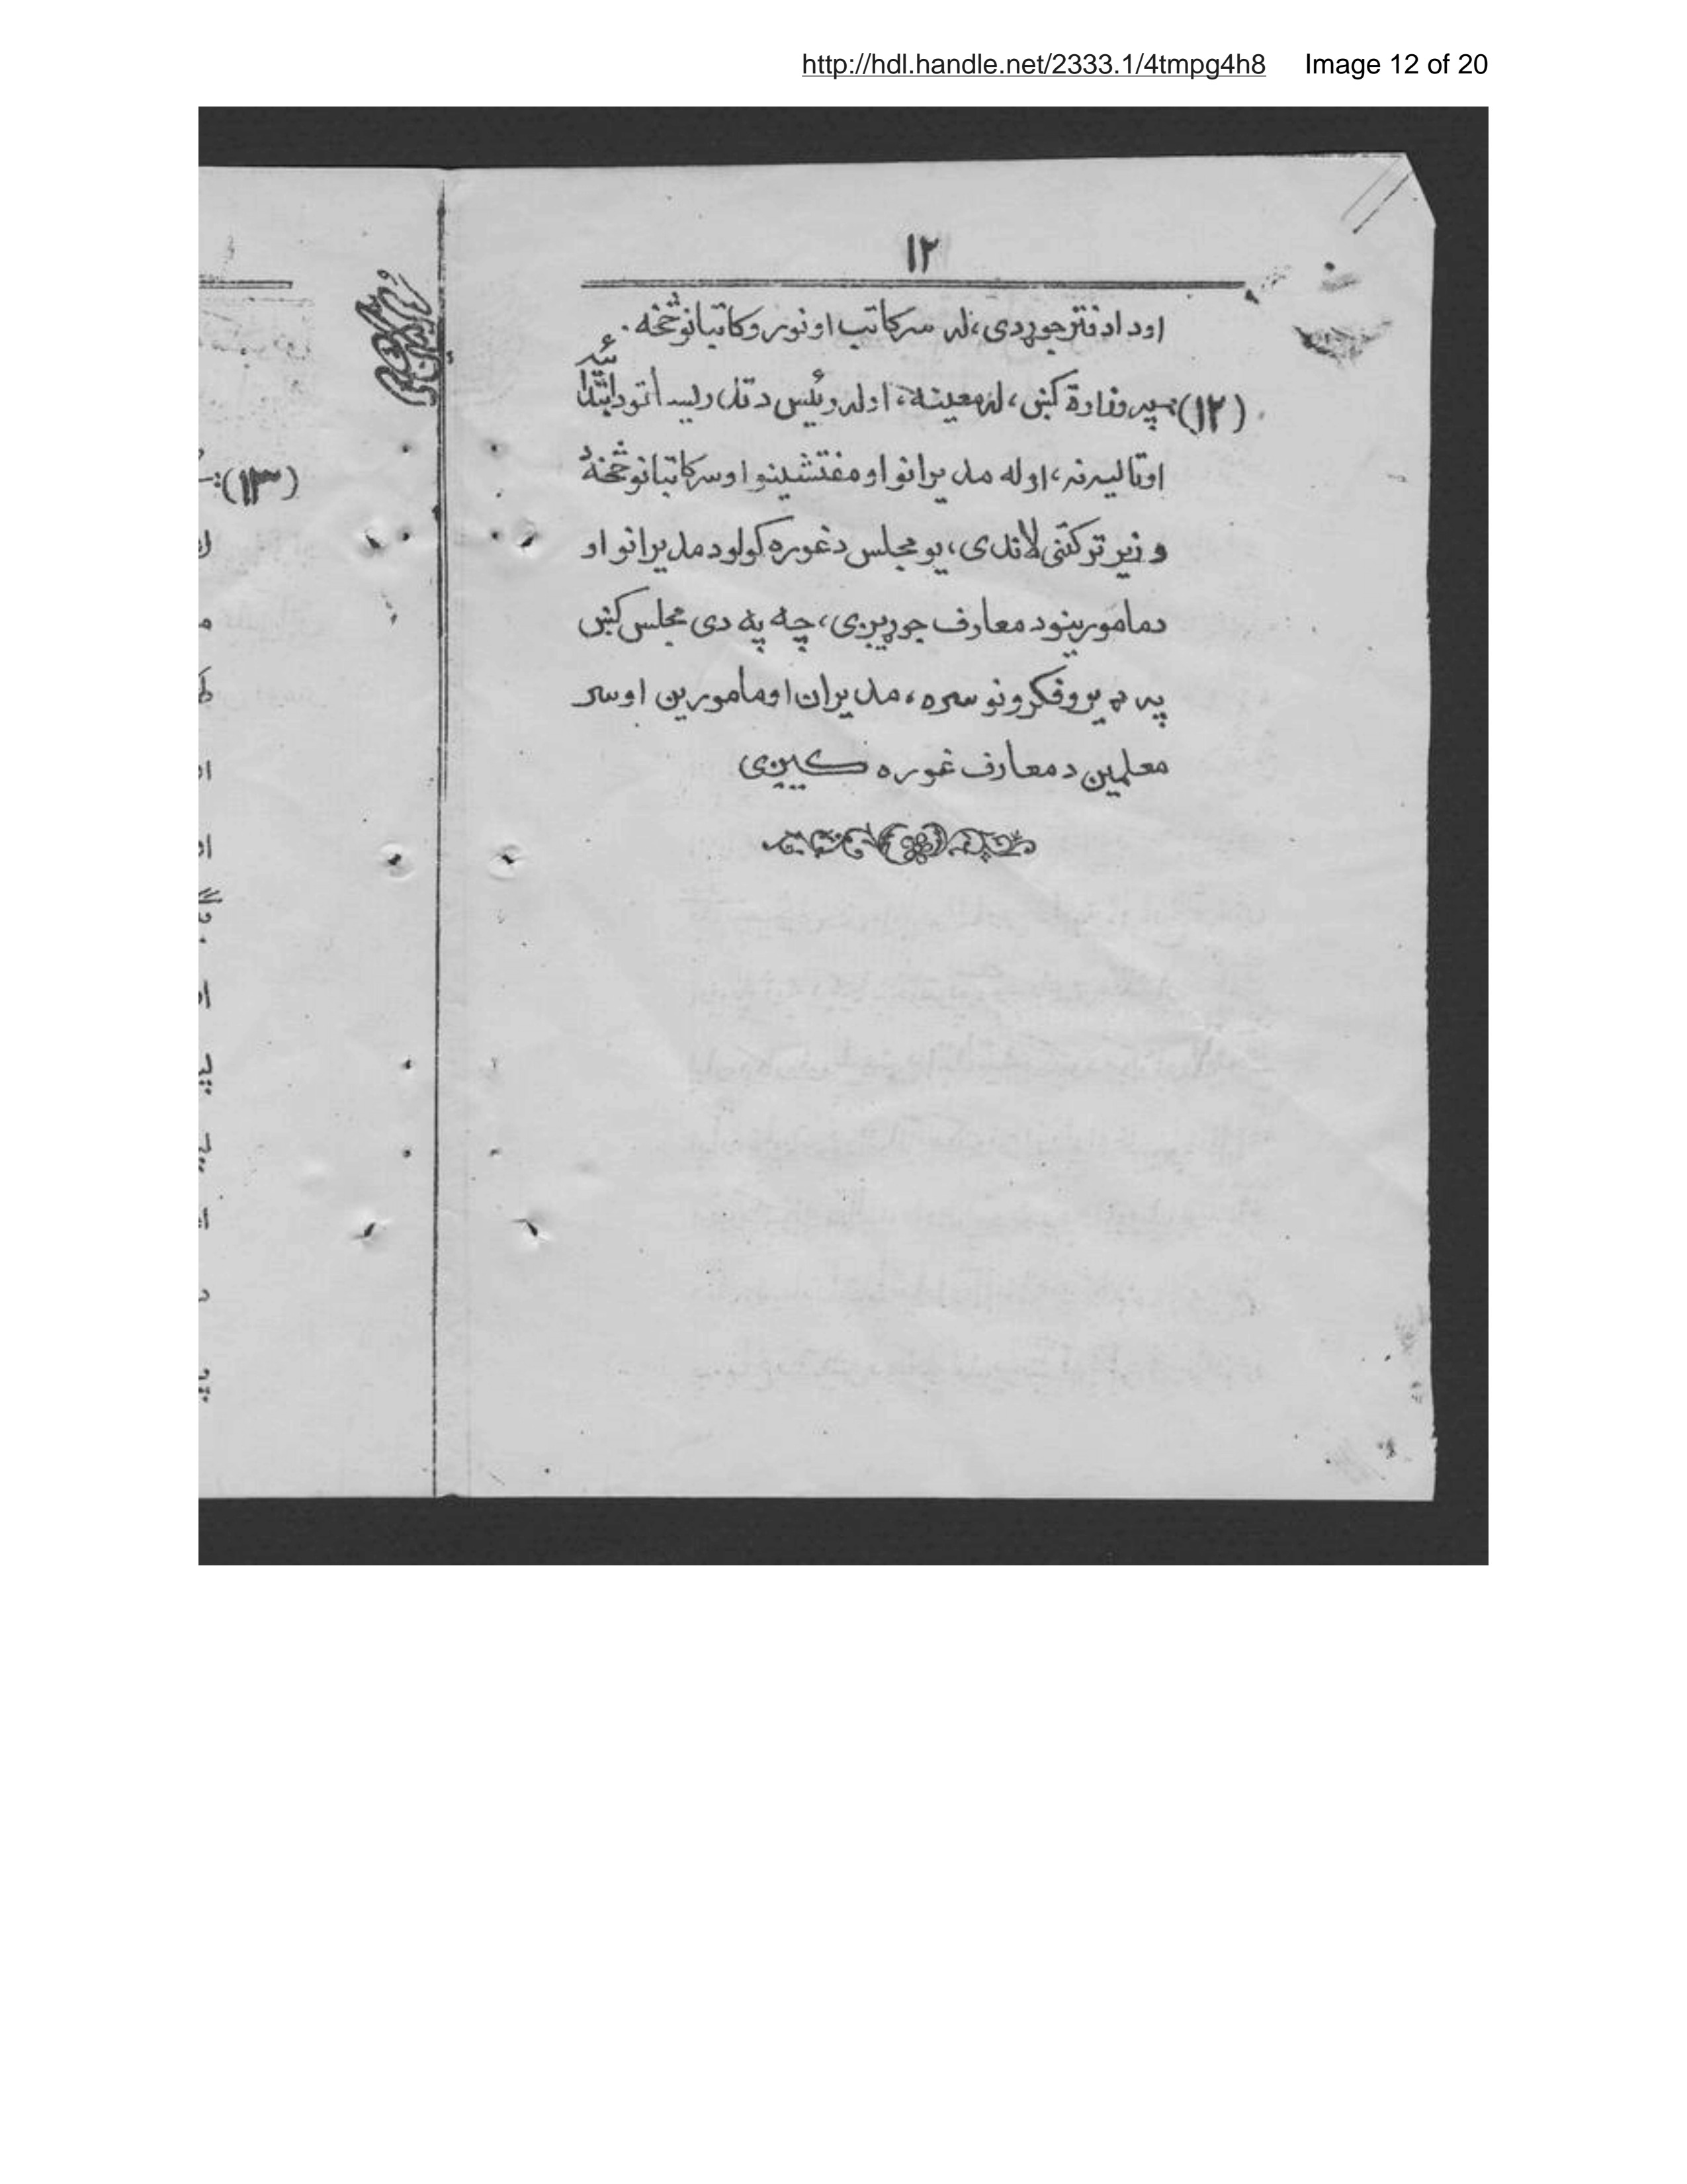 http://hdl.handle.net/2333.1/4tmpg4h8 Image 12 of 20
١٢
اود ادفتر جوړدی، له سرکاتب او نورو کاتبانو څخه.
(١٢): په وزارة کښ، له معینه، اوله رئیس د تدریساتو د ابتدائیه
اوتالیه نه، اوله مدیرانو او مفتشینو او سرکاتبانو څخه د
وزیر تر کتنی لاندی، یو مجلس د غوره کولو د مدیرانو او
د مامورینو د معارف جوړیږی، چه په دی مجلس کښ
په ډیرو فکرونو سره، مدیران او مامورین او سر
معلمین د معارف غوره کیږی
(١٣):